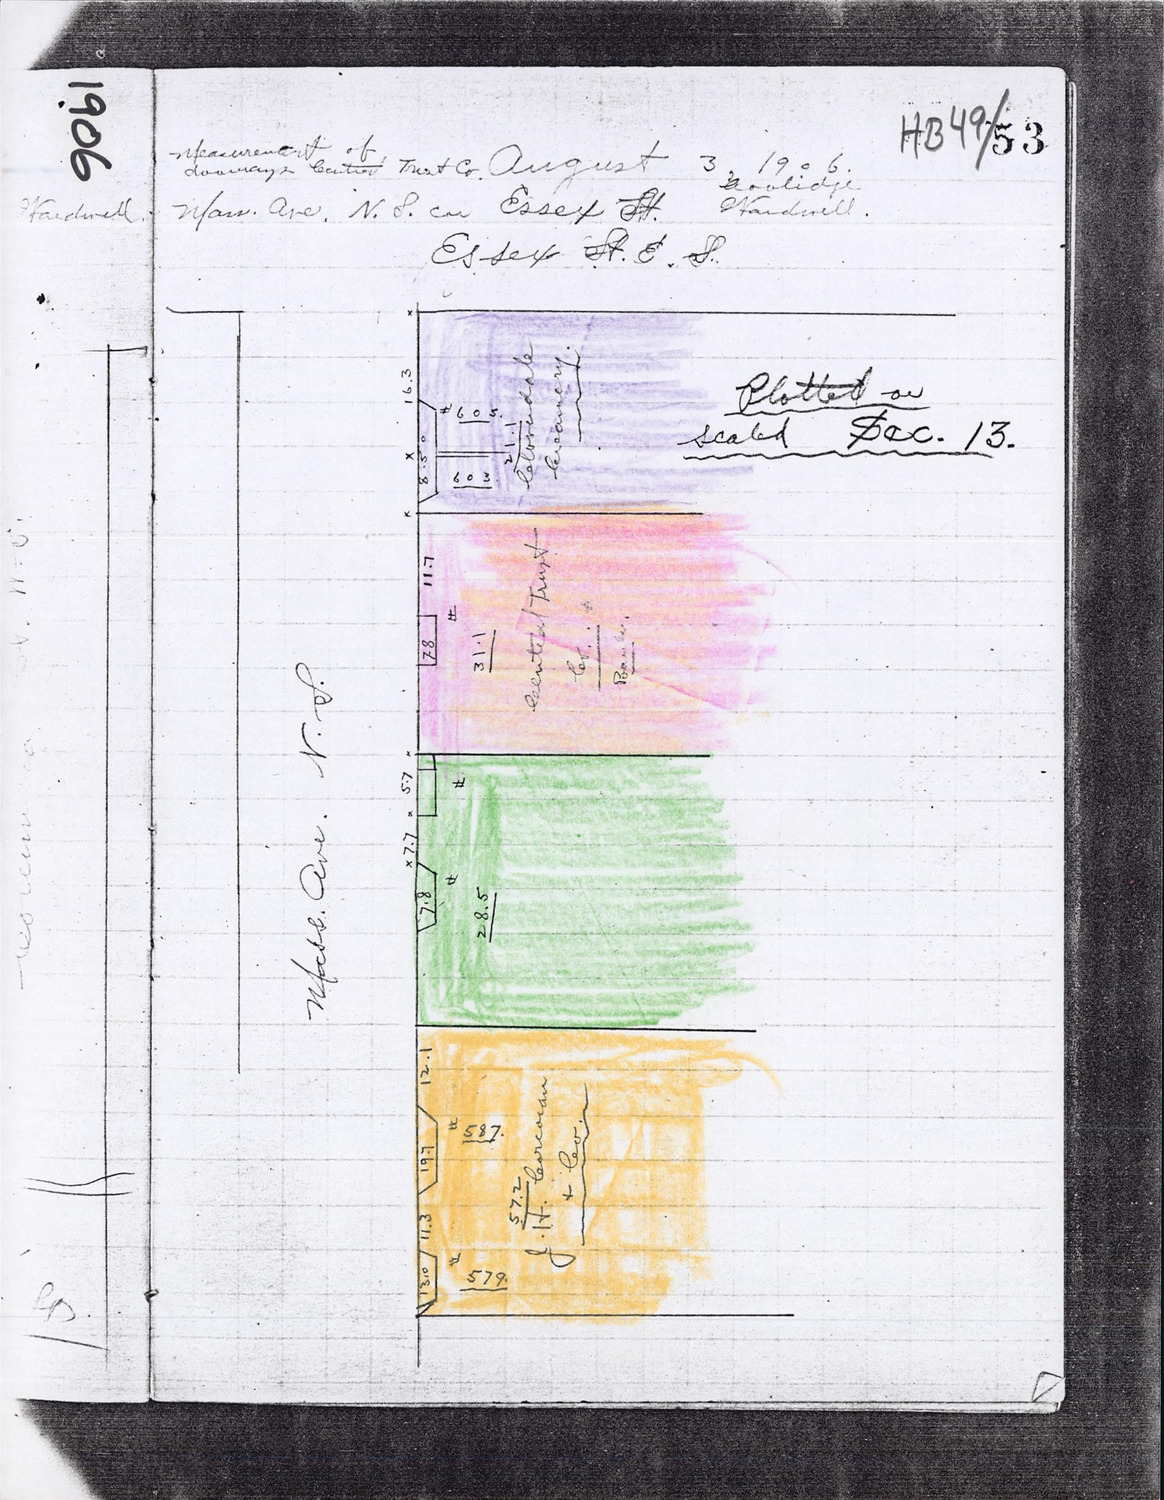 1906
HB49/53
Measurement of
doorways Central Trust Co. August 3, 1906.
Coolidge
Wardwell.
Wardwell.
Mass. Ave. N. S. cor Essex St.
Essex St. E. S.
Plotted on
scaled Dec. 13.
16.3
# 605.
8.5
603
21.1
Cloverdale
Creamery.
11.7
#
7.8
31.1
Central Trust
Co. +
Bank.
5.7
#
7.7
#
7.8
28.5
Mass. Ave. N. S.
12.1
# 587.
19.7
57.2
J. H. Corcoran
+ Co.
11.3
# 579.
13.0